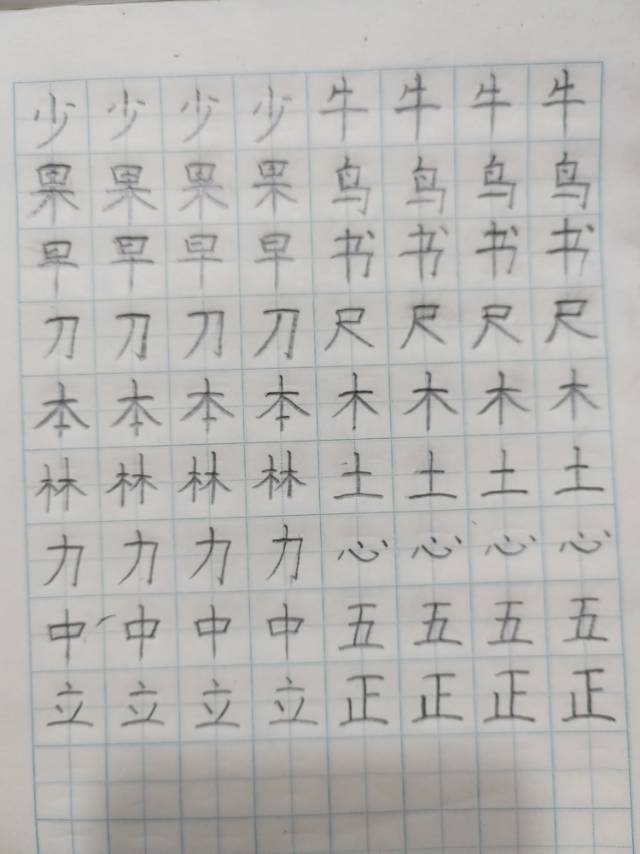 少少少少牛牛牛牛
果果果果鸟鸟鸟鸟
早早早早书书书书
刀刀刀刀尺尺尺尺
本本本本木木木木
林林林林土土土土
力力力力心心心心
中中中中五五五五
立立立立正正正正